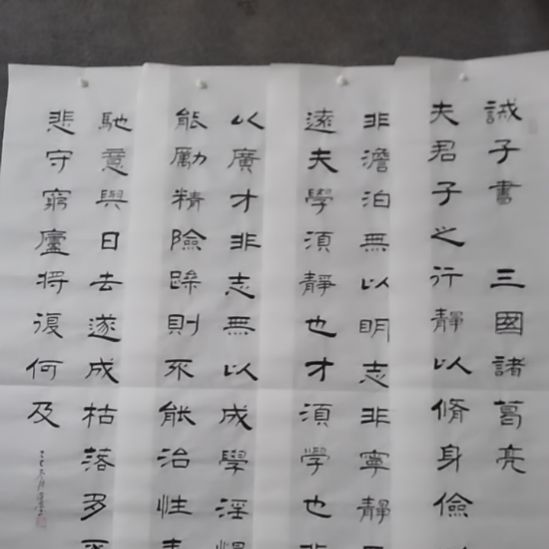 誡子書 三國諸葛亮
夫君子之行靜以脩身儉
非澹泊無以明志非寧靜
遠夫學須靜也才須學也非
以廣才非志無以成學淫慢
能勵精險躁則不能治性
馳意與日去遂成枯落多不
悲守窮廬將復何及